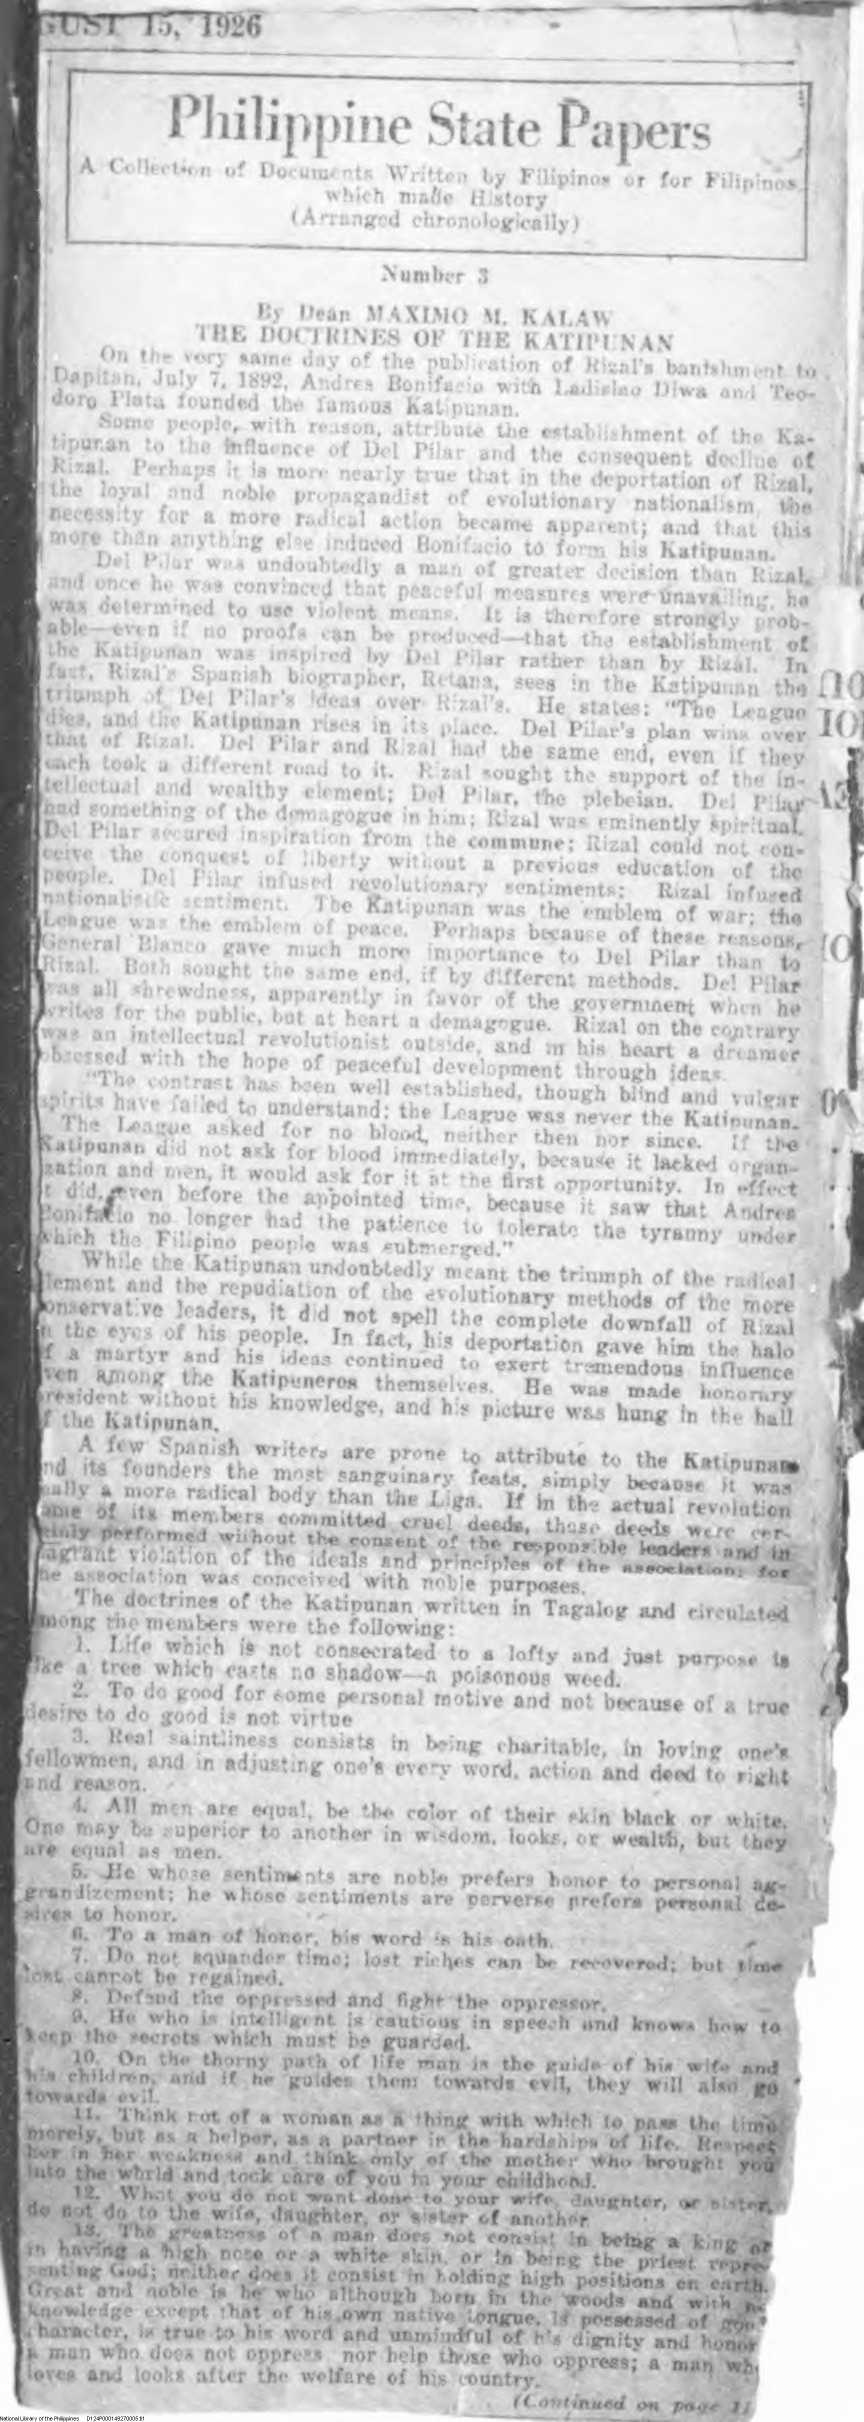 GUST 15, 1926
Philippine State Papers
A Collection of Documents Written by Filipinos or for Filipinos
which made History
(Arranged chronologically)
Number 3
By Dean MAXIMO M. KALAW
THE DOCTRINES OF THE KATIPUNAN
On the very same day of the publication of Rizal's banishment to
Dapitan, July 7, 1892, Andres Bonifacio with Ladislao Diwa and Teo-
doro Plata founded the famous Katipunan.
Some people, with reason, attribute the establishment of the Ka-
tipunan to the influence of Del Pilar and the consequent decline of
Rizal. Perhaps it is more nearly true that in the deportation of Rizal,
the loyal and noble propagandist of evolutionary nationalism, the
necessity for a more radical action became apparent; and that this
more than anything else induced Bonifacio to form his Katipunan.
Del Pilar was undoubtedly a man of greater decision than Rizal,
and once he was convinced that peaceful measures were unavailing, he
was determined to use violent means. It is therefore strongly prob-
able—even if no proofs can be produced—that the establishment of
the Katipunan was inspired by Del Pilar rather than by Rizal. In
fact, Rizal's Spanish biographer, Retana, sees in the Katipunan the
triumph of Del Pilar's ideas over Rizal's. He states: "The League
dies, and the Katipunan rises in its place. Del Pilar's plan wins over
that of Rizal. Del Pilar and Rizal had the same end, even if they
each took a different road to it. Rizal sought the support of the in-
tellectual and wealthy element; Del Pilar, the plebeian. Del Pilar
had something of the demagogue in him; Rizal was eminently spiritual.
Del Pilar secured inspiration from the commune; Rizal could not con-
ceive the conquest of liberty without a previous education of the
people. Del Pilar infused revolutionary sentiments; Rizal infused
nationalistic sentiment. The Katipunan was the emblem of war; the
League was the emblem of peace. Perhaps because of these reasons,
General Blanco gave much more importance to Del Pilar than to
Rizal. Both sought the same end, if by different methods. Del Pilar
was all shrewdness, apparently in favor of the government when he
writes for the public, but at heart a demagogue. Rizal on the contrary
was an intellectual revolutionist outside, and in his heart a dreamer
obsessed with the hope of peaceful development through ideas.
"The contrast has been well established, though blind and vulgar
spirits have failed to understand: the League was never the Katipunan.
The League asked for no blood, neither then nor since. If the
Katipunan did not ask for blood immediately, because it lacked organ-
ization and men, it would ask for it at the first opportunity. In effect
it did, even before the appointed time, because it saw that Andres
Bonifacio no longer had the patience to tolerate the tyranny under
which the Filipino people was submerged."
While the Katipunan undoubtedly meant the triumph of the radical
lement and the repudiation of the evolutionary methods of the more
onservative leaders, it did not spell the complete downfall of Rizal
n the eyes of his people. In fact, his deportation gave him the halo
f a martyr and his ideas continued to exert tremendous influence
ven among the Katipuneros themselves. He was made honorary
resident without his knowledge, and his picture was hung in the hall
f the Katipunan.
A few Spanish writers are prone to attribute to the Katipunan
nd its founders the most sanguinary feats, simply because it was
ually a more radical body than the Liga. If in the actual revolution
ame of its members committed cruel deeds, those deeds were cer-
ainly performed without the consent of the responsible leaders and in
lagrant violation of the ideals and principles of the association; for
he association was conceived with noble purposes.
The doctrines of the Katipunan written in Tagalog and circulated
among the members were the following:
1. Life which is not consecrated to a lofty and just purpose is
like a tree which casts no shadow—a poisonous weed.
2. To do good for some personal motive and not because of a true
desire to do good is not virtue
3. Real saintliness consists in being charitable, in loving one's
fellowmen, and in adjusting one's every word, action and deed to right
and reason.
4. All men are equal, be the color of their skin black or white.
One may be superior to another in wisdom, looks, or wealth, but they
are equal as men.
5. He whose sentiments are noble prefers honor to personal ag-
grandizement; he whose sentiments are perverse prefers personal de-
sires to honor.
6. To a man of honor, his word is his oath.
7. Do not squander time; lost riches can be recovered; but time
lost cannot be regained.
8. Defend the oppressed and fight the oppressor.
9. He who is intelligent is cautious in speech and knows how to
keep the secrets which must be guarded.
10. On the thorny path of life man is the guide of his wife and
his children, and if he guides them towards evil, they will also go
towards evil.
11. Think not of a woman as a thing with which to pass the time
merely, but as a helper, as a partner in the hardships of life. Respect
her in her weakness and think only of the mother who brought you
into the world and took care of you in your childhood.
12. What you do not want done to your wife, daughter, or sister,
do not do to the wife, daughter, or sister of another
13. The greatness of a man does not consist in being a king or
in having a high nose or a white skin, or in being the priest repre-
senting God; neither does it consist in holding high positions on earth.
Great and noble is he who although born in the woods and with no
knowledge except that of his own native tongue, is possessed of good
character, is true to his word and unmindful of his dignity and honor
a man who does not oppress nor help those who oppress; a man who
loves and looks after the welfare of his country.
(Continued on page 1
National Library of the Philippines